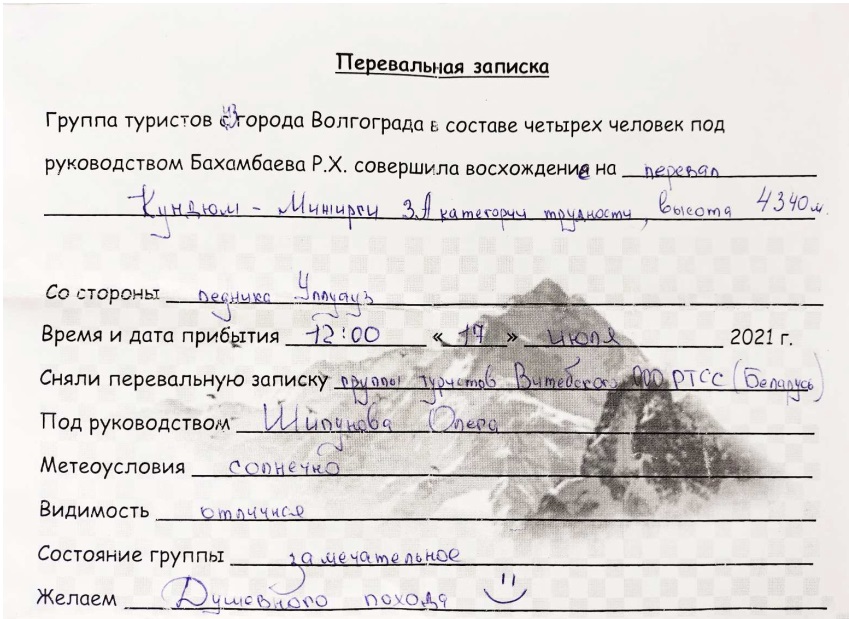 Перевальная записка
Группа туристов из города Волгограда в составе четырех человек под
руководством Бахамбаева Р.Х. совершила восхождение на перевал
Кундюм - Мижирги 3А категории трудности, высота 4340 м.
Со стороны ледника Уллуауз
Время и дата прибытия 12:00 «17» июля 2021 г.
Сняли перевальную записку группы туристов Витебского ООО РТСС (Беларусь)
Под руководством Шипунова Олега
Метеоусловия солнечно
Видимость отличная
Состояние группы замечательное
Желаем Душевного похода